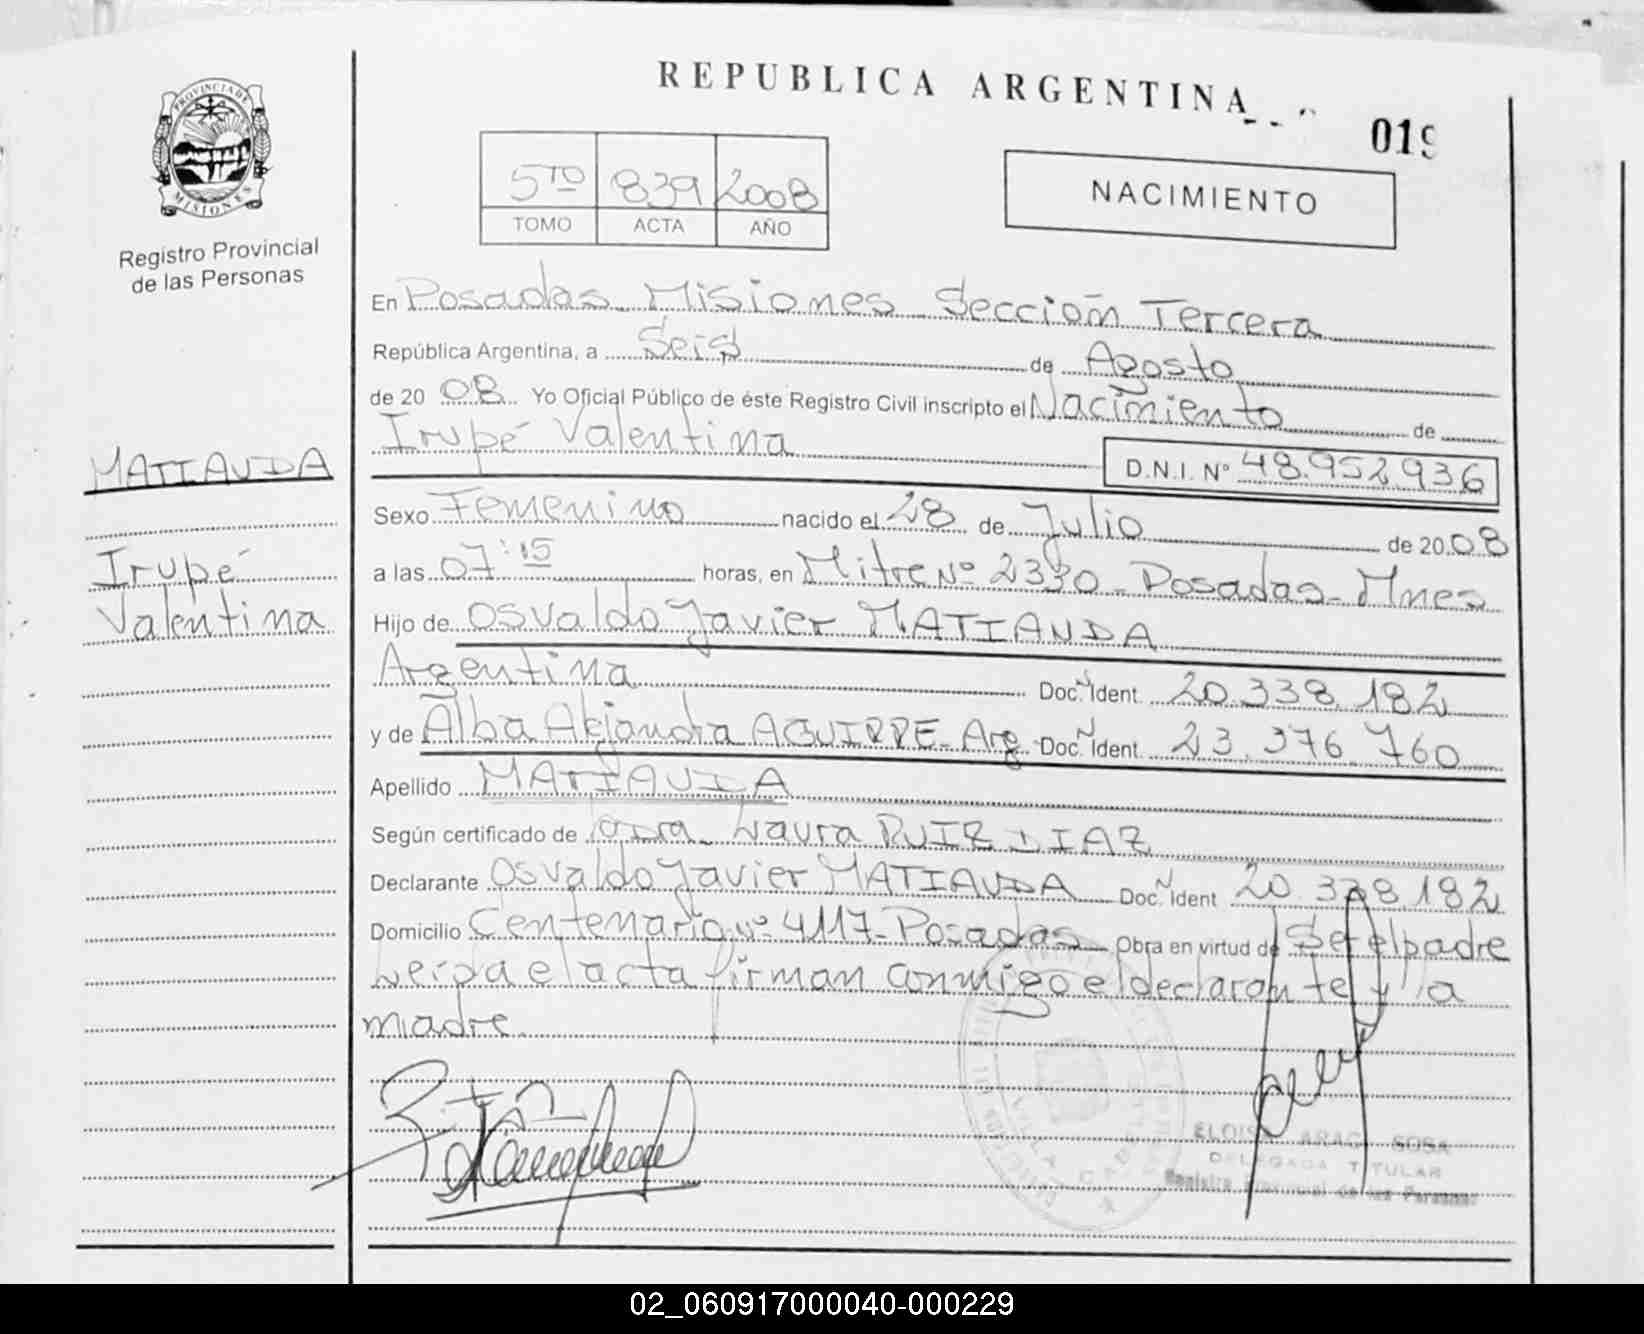 REPUBLICA ARGENTINA
019
PROVINCIA DE MISIONES
Registro Provincial
de las Personas
5TO 839 2008
TOMO ACTA AÑO
NACIMIENTO
En Posadas Misiones Sección Tercera
República Argentina, a Seis de Agosto
de 20 08 Yo Oficial Público de éste Registro Civil inscripto el Nacimiento de
Irupé Valentina
D.N.I. Nº 48.952.936
MATIAUDA
Irupé
Valentina
Sexo Femenino nacido el 28 de Julio de 20 08
a las 07:15 horas, en Mitre Nº 2330 - Posadas - Mnes
Hijo de Osvaldo Javier MATIAUDA
Argentina Doc. Ident. 20.338.182
y de Alba Alejandra AGUIRRE - Arg Doc. Ident. 23.376.760
Apellido MATIAUDA
Según certificado de Dra. Laura RUIZ DIAZ
Declarante Osvaldo Javier MATIAUDA Doc. Ident 20.338.182
Domicilio Centenario Nº 4117 - Posadas Obra en virtud de Ser el padre
Leida el acta firman conmigo el declarante y la
madre.
ELOISA SOSA
DELEGADA TITULAR
Registro Provincial de las Personas
02_060917000040-000229